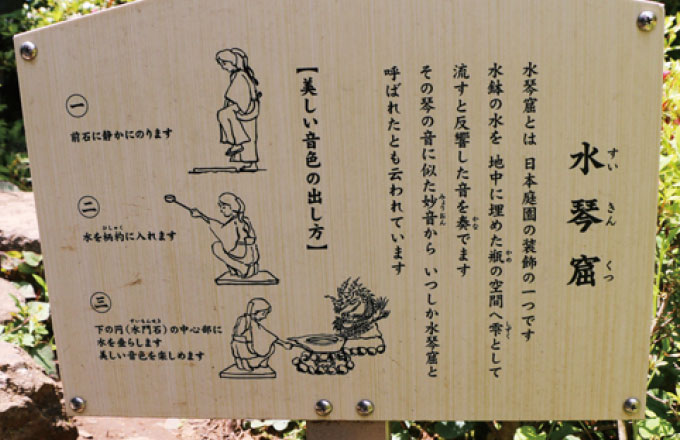 水琴窟
すいきんくつ
水琴窟とは 日本庭園の装飾の一つです
水鉢の水を 地中に埋めた瓶の空間へ雫として
かめ
しずく
流すと反響した音を奏でます
かな
その琴の音に似た妙音から いつしか水琴窟と
みょうおん
呼ばれたとも云われています
【美しい音色の出し方】
一
前石に静かにのります
二
おしゃく
水を柄杓に入れます
三
すいもんせき
下の円(水門石)の中心部に
水を垂らします
美しい音色を楽しめます